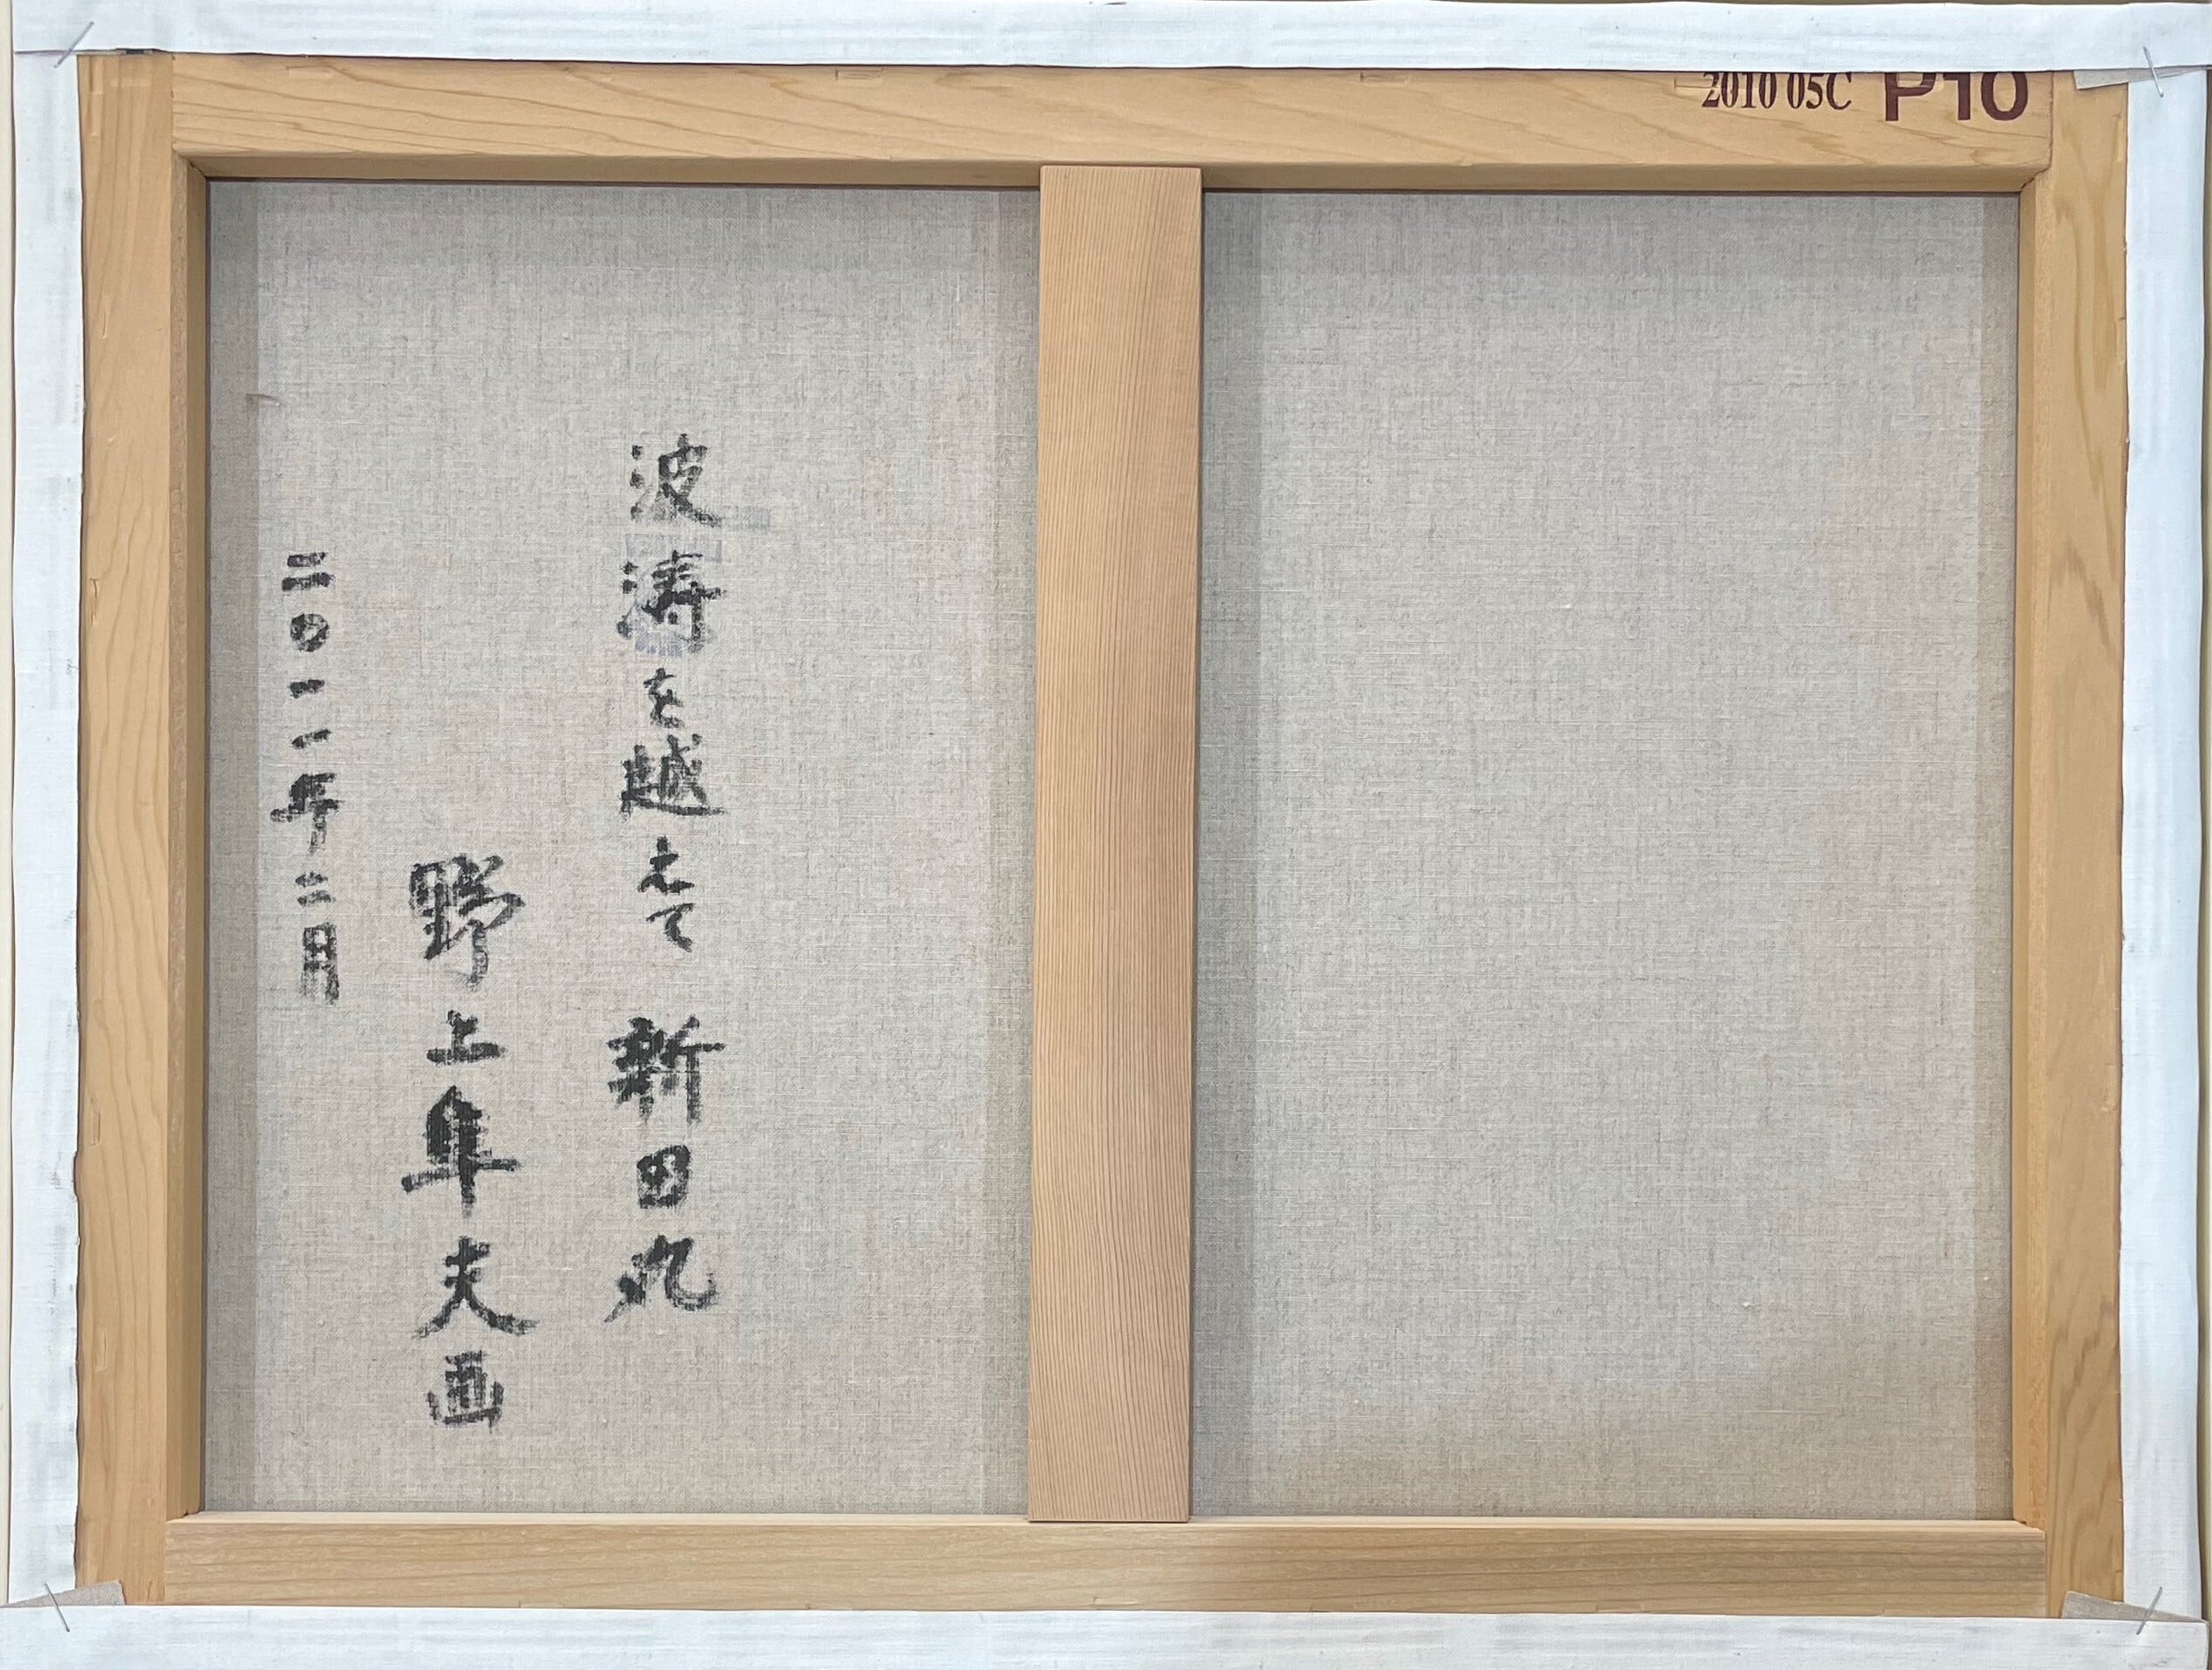 2010 05C P10
波涛を越えて 新田丸
野上隼夫画
二〇一一年二月